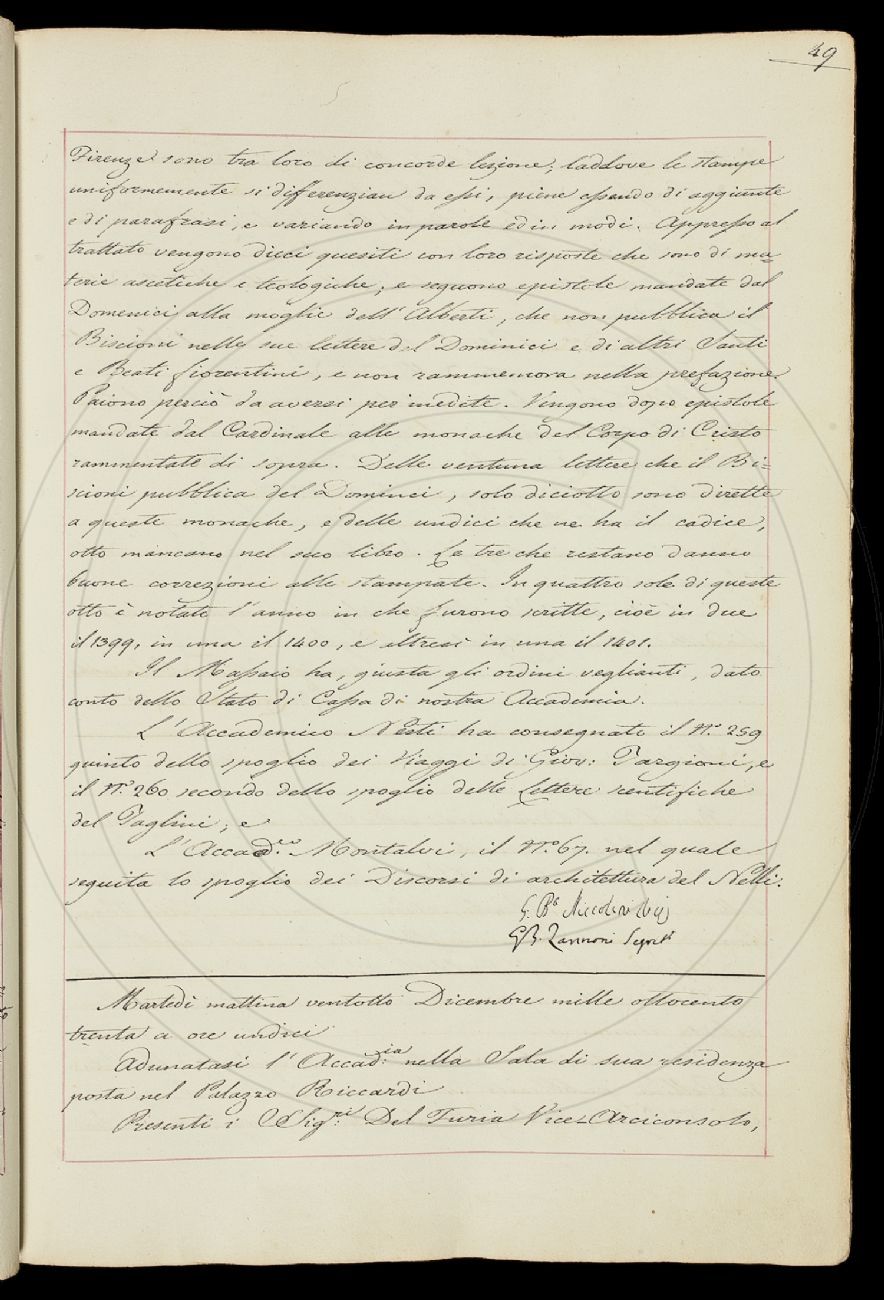 49
Firenze sono tra loro di concorde lezione, laddove le stampe
uniformemente si differenzian da essi, piene essendo di aggiunte
e di parafrasi, e variando in parole ed in modi. Appresso al
trattato vengono dieci quesiti con loro risposte che sono di ma=
terie ascetiche e teologiche; e seguono epistole mandate dal
Domenici alla moglie dell'Alberti, che non pubblica il
Biscioni nelle sue lettere del Dominici e di altri Santi
e Beati fiorentini, e non rammemora nella prefazione.
Paiono perciò da aversi per inedite. Vengono dopo epistole
mandate dal Cardinale alle monache del Corpo di Cristo
rammentate di sopra. Delle ventuna lettere che il Bi=
scioni pubblica del Dominici, solo diciotto sono dirette
a queste monache, e delle undici che ne ha il codice,
otto mancano nel suo libro. Le tre che restano danno
buone correzioni alle stampate. In quattro sole di queste
otto è notato l'anno in che furono scritte, cioè in due
il 1399, in una il 1400, e altresì in una il 1401.
Il Massaio ha, giusta gli ordini veglianti, dato
conto dello Stato di Cassa di nostra Accademia.
L'Accademico Nesti ha consegnato il N.° 259
quinto dello spoglio dei Viaggi di Giov: Targioni, e
il N.° 260 secondo dello spoglio delle Lettere scentifiche
del Taglini; e
L'Accad.co Montalvi, il N.° 67. nel quale
seguita lo spoglio dei Discorsi di architettura del Nelli.
G. Bª Niccolini
G.B. Zannoni Segret.º
Martedì mattina ventotto Dicembre mille ottocento
trenta a ore undici
Adunatasi l'Accad:ia nella Sala di sua residenza
posta nel Palazzo Riccardi
Presenti i Sig:ri Del Furia Vice-Arciconsolo,